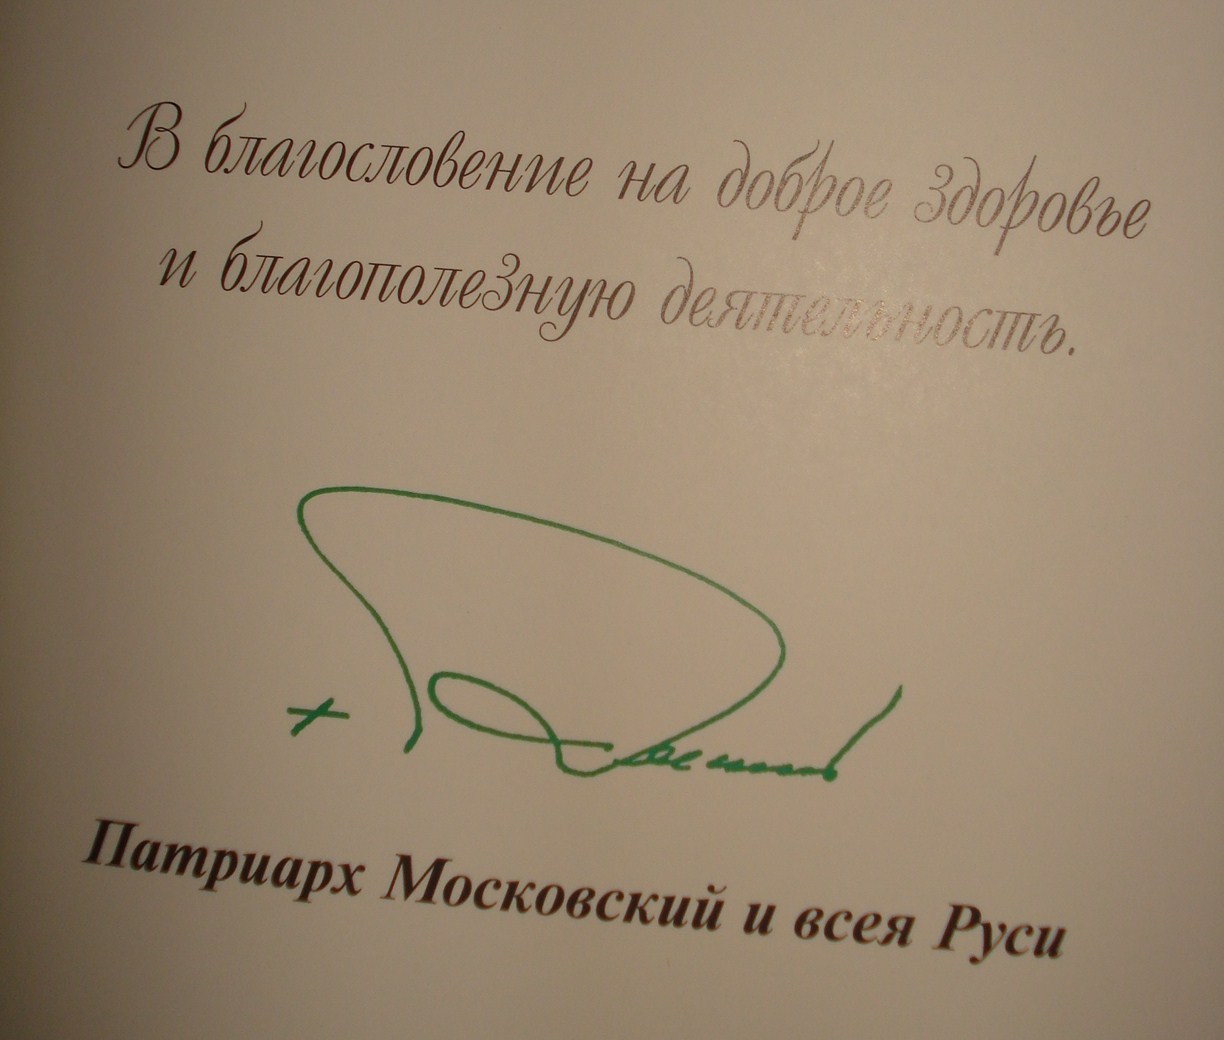 В благословение на доброе здоровье
и благополезную деятельность.
+
Патриарх Московский и всея Руси